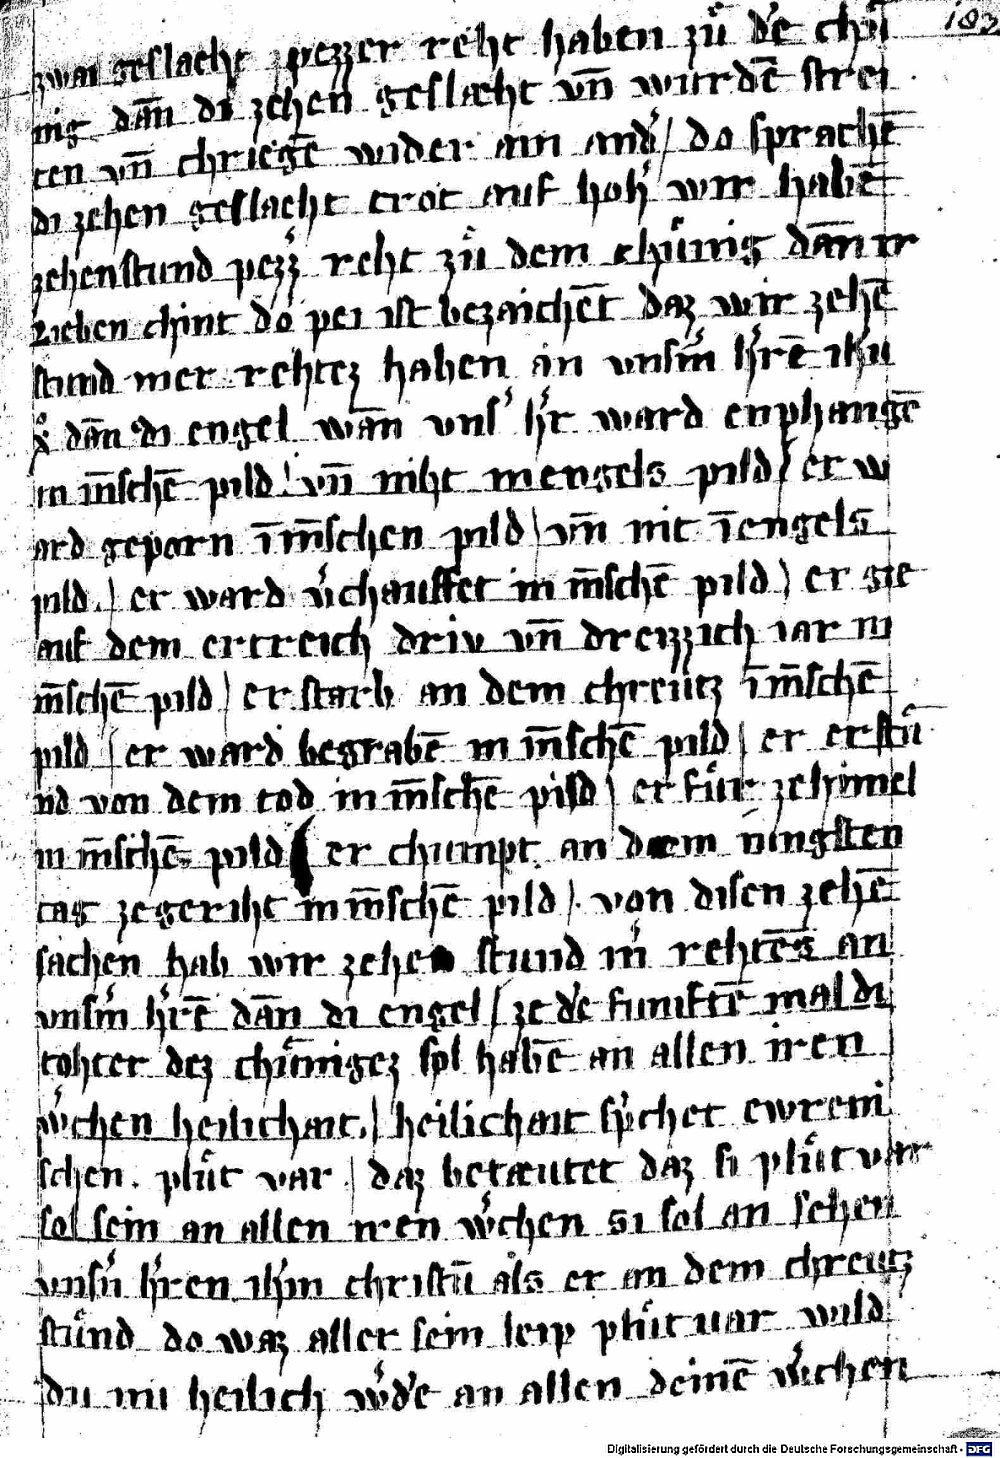 182
zwai geslacht pezzer reht haben zuͦ dˀe chuͤ
nig dan̄ di zehen geslæht vn̄ wurdē strei
ten vn̄ chriegē wider ain andˀ / do sprachē
di zehen geslacht trot auf hohˀ wir habē
zehenstund pezzˀ reht zuͦ dem chuͤnig dan̄ ir
Lieben chint do pei ist bezaichēt daz wir zehē
stund mer rehtez haben an vnsm̄ hˀrē ihū
xͦ dan̄ di engel wan̄ vnsˀ hˀr ward enphangē
in m̄schē pild / vn̄ niht in engels pild / er w
ard geporn ī m̄schen pild / vn̄ nit ī engels
pild / er ward vˀchauffet in m̄schē pild / er gie
auf dem ertreich driv vn̄ dreizzich iar in
m̄schē pild / er starb an dem chreutz ī m̄schē
pild / er ward begrabē in m̄schē pild / er erstuͦ
nd von dem tod in m̄schē pild / er fuͦr ze himel
in m̄schē pild / er chumpt an dem iungsten
tag ze geriht in m̄schē pild / von disen zehē
sachen hab wir zehen stund mˀ rehtēs an
vnsm̄ hˀrē dan̄ di engel / ze dˀe fumftē mal di
tohter dez chuͤnigez sol habē an allen iren
wˀchen heilichait / heilichait spˀchet ewrem
schen . pluͦt var / daz betæutet daz si pluͦt var
sol sein an allen iren wˀchen si sol an sehen
vnsn̄ hˀren ihm christū als er an dem chreutz
stuͦnd do waz aller sein leip pluͦt uar wild
du nu heilich wˀdˀe an allen deinē wˀchen
Digitalisierung gefördert durch die Deutsche Forschungsgemeinschaft - DFG